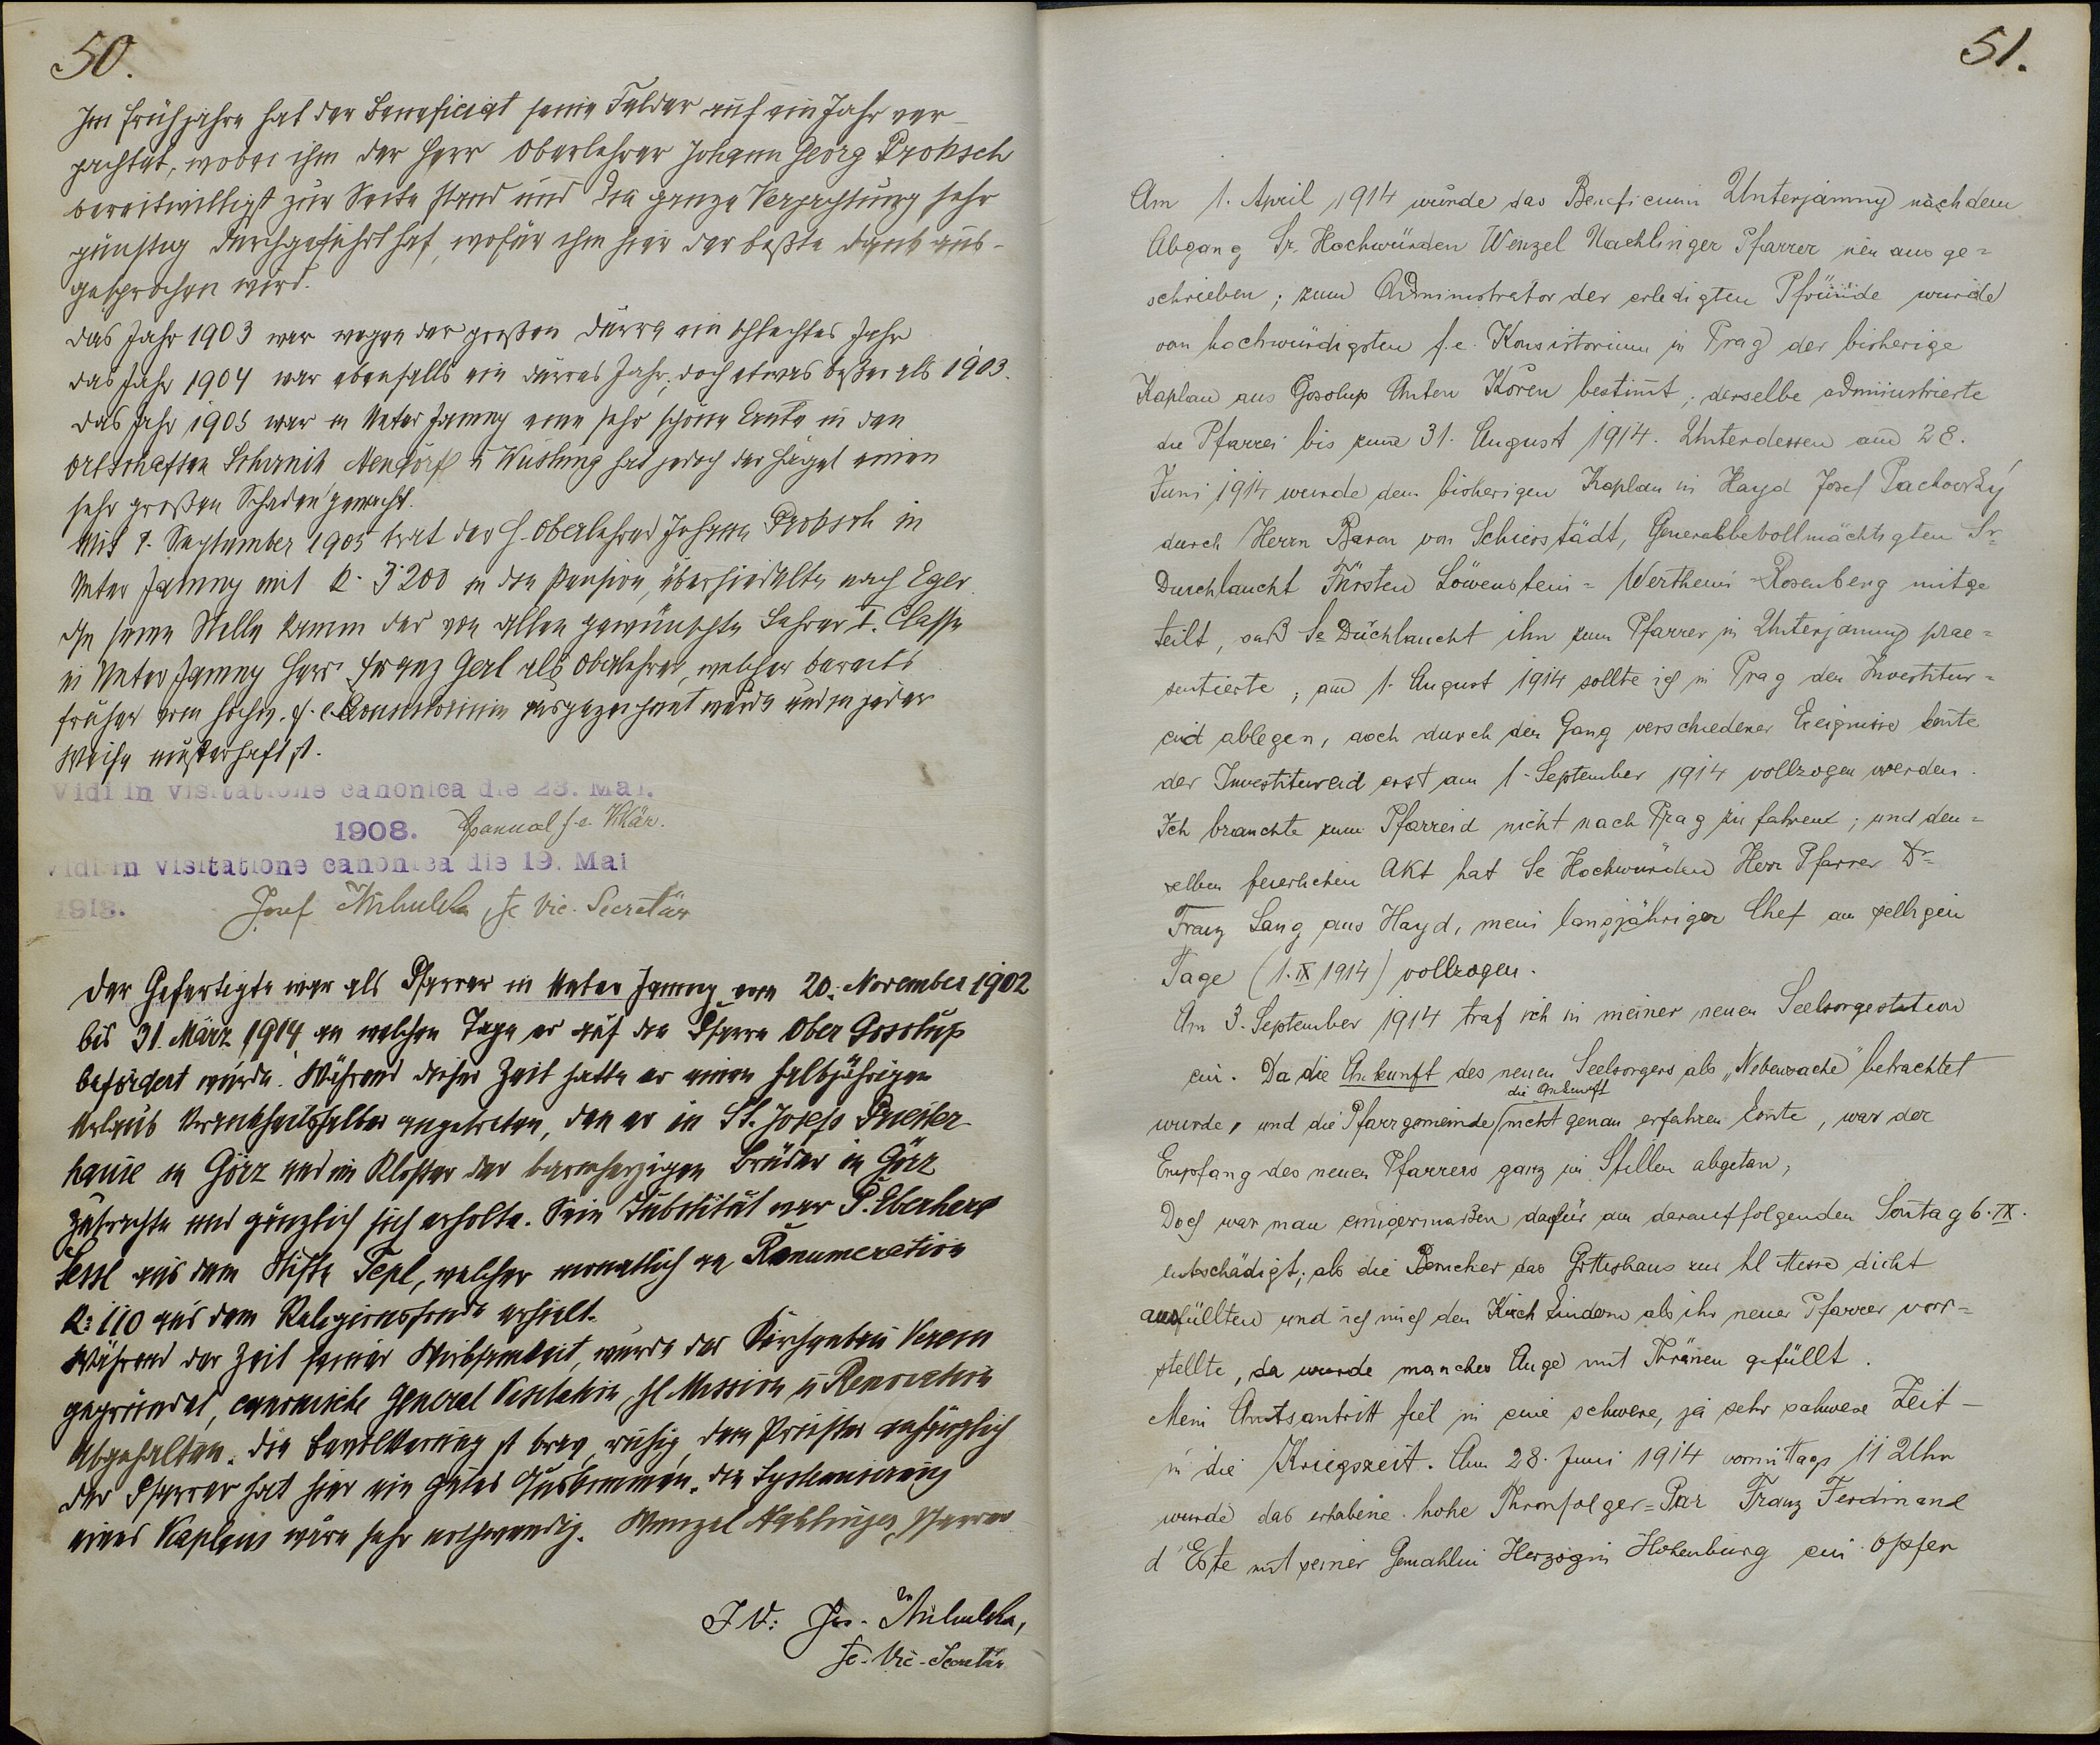 50.
Im Frühjahre hat der Beneficiat seine Felder auf ein Jahr ver-
pachtet, wobei ihm der Herr Oberlehrer Johann Georg Proksch
bereitwilligst zur Seite stand und die ganze Verpachtung sehr
günstig durchgeführt hat, wofür ihm hier der beßte Dank aus-
gesprochen wird.
Das Jahr 1903 war wegen der großen Dürre ein schlechtes Jahr
Das Jahr 1904 war ebenfalls ein dürres Jahr, doch etwas beßer als 1903.
Das Jahr 1905 war in Unter Jamny eine sehr schöne Ernte in den
Ortschaften Neudorf u Wuslung hat jedoch der Hagel einen
sehr großen Schaden gemacht.
Mit 1. September 1905 trat der H. Oberlehrer Johann Proksch in
Unter Jamny mit K. 3200 in die Pension, übersiedelte nach Eger.
An seine Stelle kamm der von allen gewünschte Lehrer I. Classe
in Unter Jamny Herr Franz Gerl als Oberlehrer, welcher bereits
früher vom hochw. f. e. Consistorium ausgezeichnet wurde und in jeder
Weise musterhaft ist.
Vidi in visitatione canonica die 23. Mai.
1908. f. e. Vikär.
Vidi in visitatione canonica die 19. Mai
1913. Josef Mikulka, f. e. Vic. Secretär
Der Gefertigte war als Pfarrer in Unter Jamny vom 20. November 1902
bis 31. März 1914, an welchem Tage er auf die Pfarre Ober Gosolup
befördert wurde. Während dieser Zeit hatte er einen halbjährigen
Urlaub krankheitshalber angetreten, den er in St. Josefs Priester
hause in Görz und im Kloster der barmherzigen Brüder in Görz
zubrachte und gänzlich sich erholte. Sein Substitut war P. Eberhard
aus dem Stifte Tepl, welcher monatlich an Renumeration
K: 110 aus dem Religionsfonde erhielt.
Während der Zeit seiner Wirksamkeit, wurde der Kirchenbau Verein
gegründet, canonische General Visitation, hl Mission u Renovation
abgehalten. Die Bevölkerung ist brav, ruhig, dem Priester anhänglich
der Pfarrer hat hier ein gutes Auskommen. Die Systemisierung
eines Kaplans wäre sehr nothwendig. Wenzel Nachlinger, Pfarrer
I. V: Jos. Mikulka,
f. e. Vic-Secretär
51.
Am 1. April 1914 wurde das Beneficium Unterjamny nach dem
Abgang Sr. Hochwürden Wenzel Nachlinger Pfarrer neu ausge=
schrieben; zum Administrator der erledigten Pfründe wurde
von hochwürdigsten f. e. Konsistorium in Prag der bisherige
Kaplan aus Gosolup Anton Kořen bestimt; derselbe administrierte
die Pfarrei bis zum 31. August 1914. Unterdessen am 28.
Juni 1914 wurde dem bisherigen Kaplan in Hayd Josef Pachovský
durch Herrn Baron von Schierstädt, Generalbevollmächtigten Sr.
Durchlaucht Fürsten Löwenstein=Wertheim=Rosenberg mitge
teilt, daß Se Duchlaucht ihn zum Pfarrer in Unterjamny prae=
sentierte; am 1. August 1914 sollte ich in Prag den Investitur=
eid ablegen, doch durch den Gang verschiedener Ereignisse konte
der Investitureid erst am 1. September 1914 vollzogen werden.
Ich brauchte zum Pfarreid nicht nach Prag zu fahren; und den=
selben feierlichen Akt hat Se Hochwürden Herr Pfarrer Dr
Franz Lang aus Hayd, mein langjähriger Chef am selbigen
Tage (1. IX 1914) vollzogen.
Am 3. September 1914 traf ich in meiner neuen Seelsorgestation
ein. Da die Ankunft des neuen Seelsorgers als „Nebensache" betrachtet
die Ankunft
wurde, und die Pfarrgemeinde nicht genau erfahren konte, war der
Empfang des neuen Pfarrers ganz im Stillen abgetan;
Doch war man einigermaßen dafür am darauffolgenden Sontag 6. IX.
entschädigt; als die Besucher das Gotteshaus zur hl Messe dicht
ausfüllten und ich mich den Kirchkindern als ihr neuer Pfarrer vorr=
stellte, da wurde manches Auge mit Thränen gefüllt.
Mein Amtsantritt fiel in eine schwere, ja sehr schwere Zeit -
in die Kriegszeit. Am 28. Juni 1914 vormittags 11 Uhr
wurde das erhabene hohe Thronfolger=Par Franz Ferdinand
d'Este mit seiner Gemahlin Herzogin Hohenburg ein Opfer